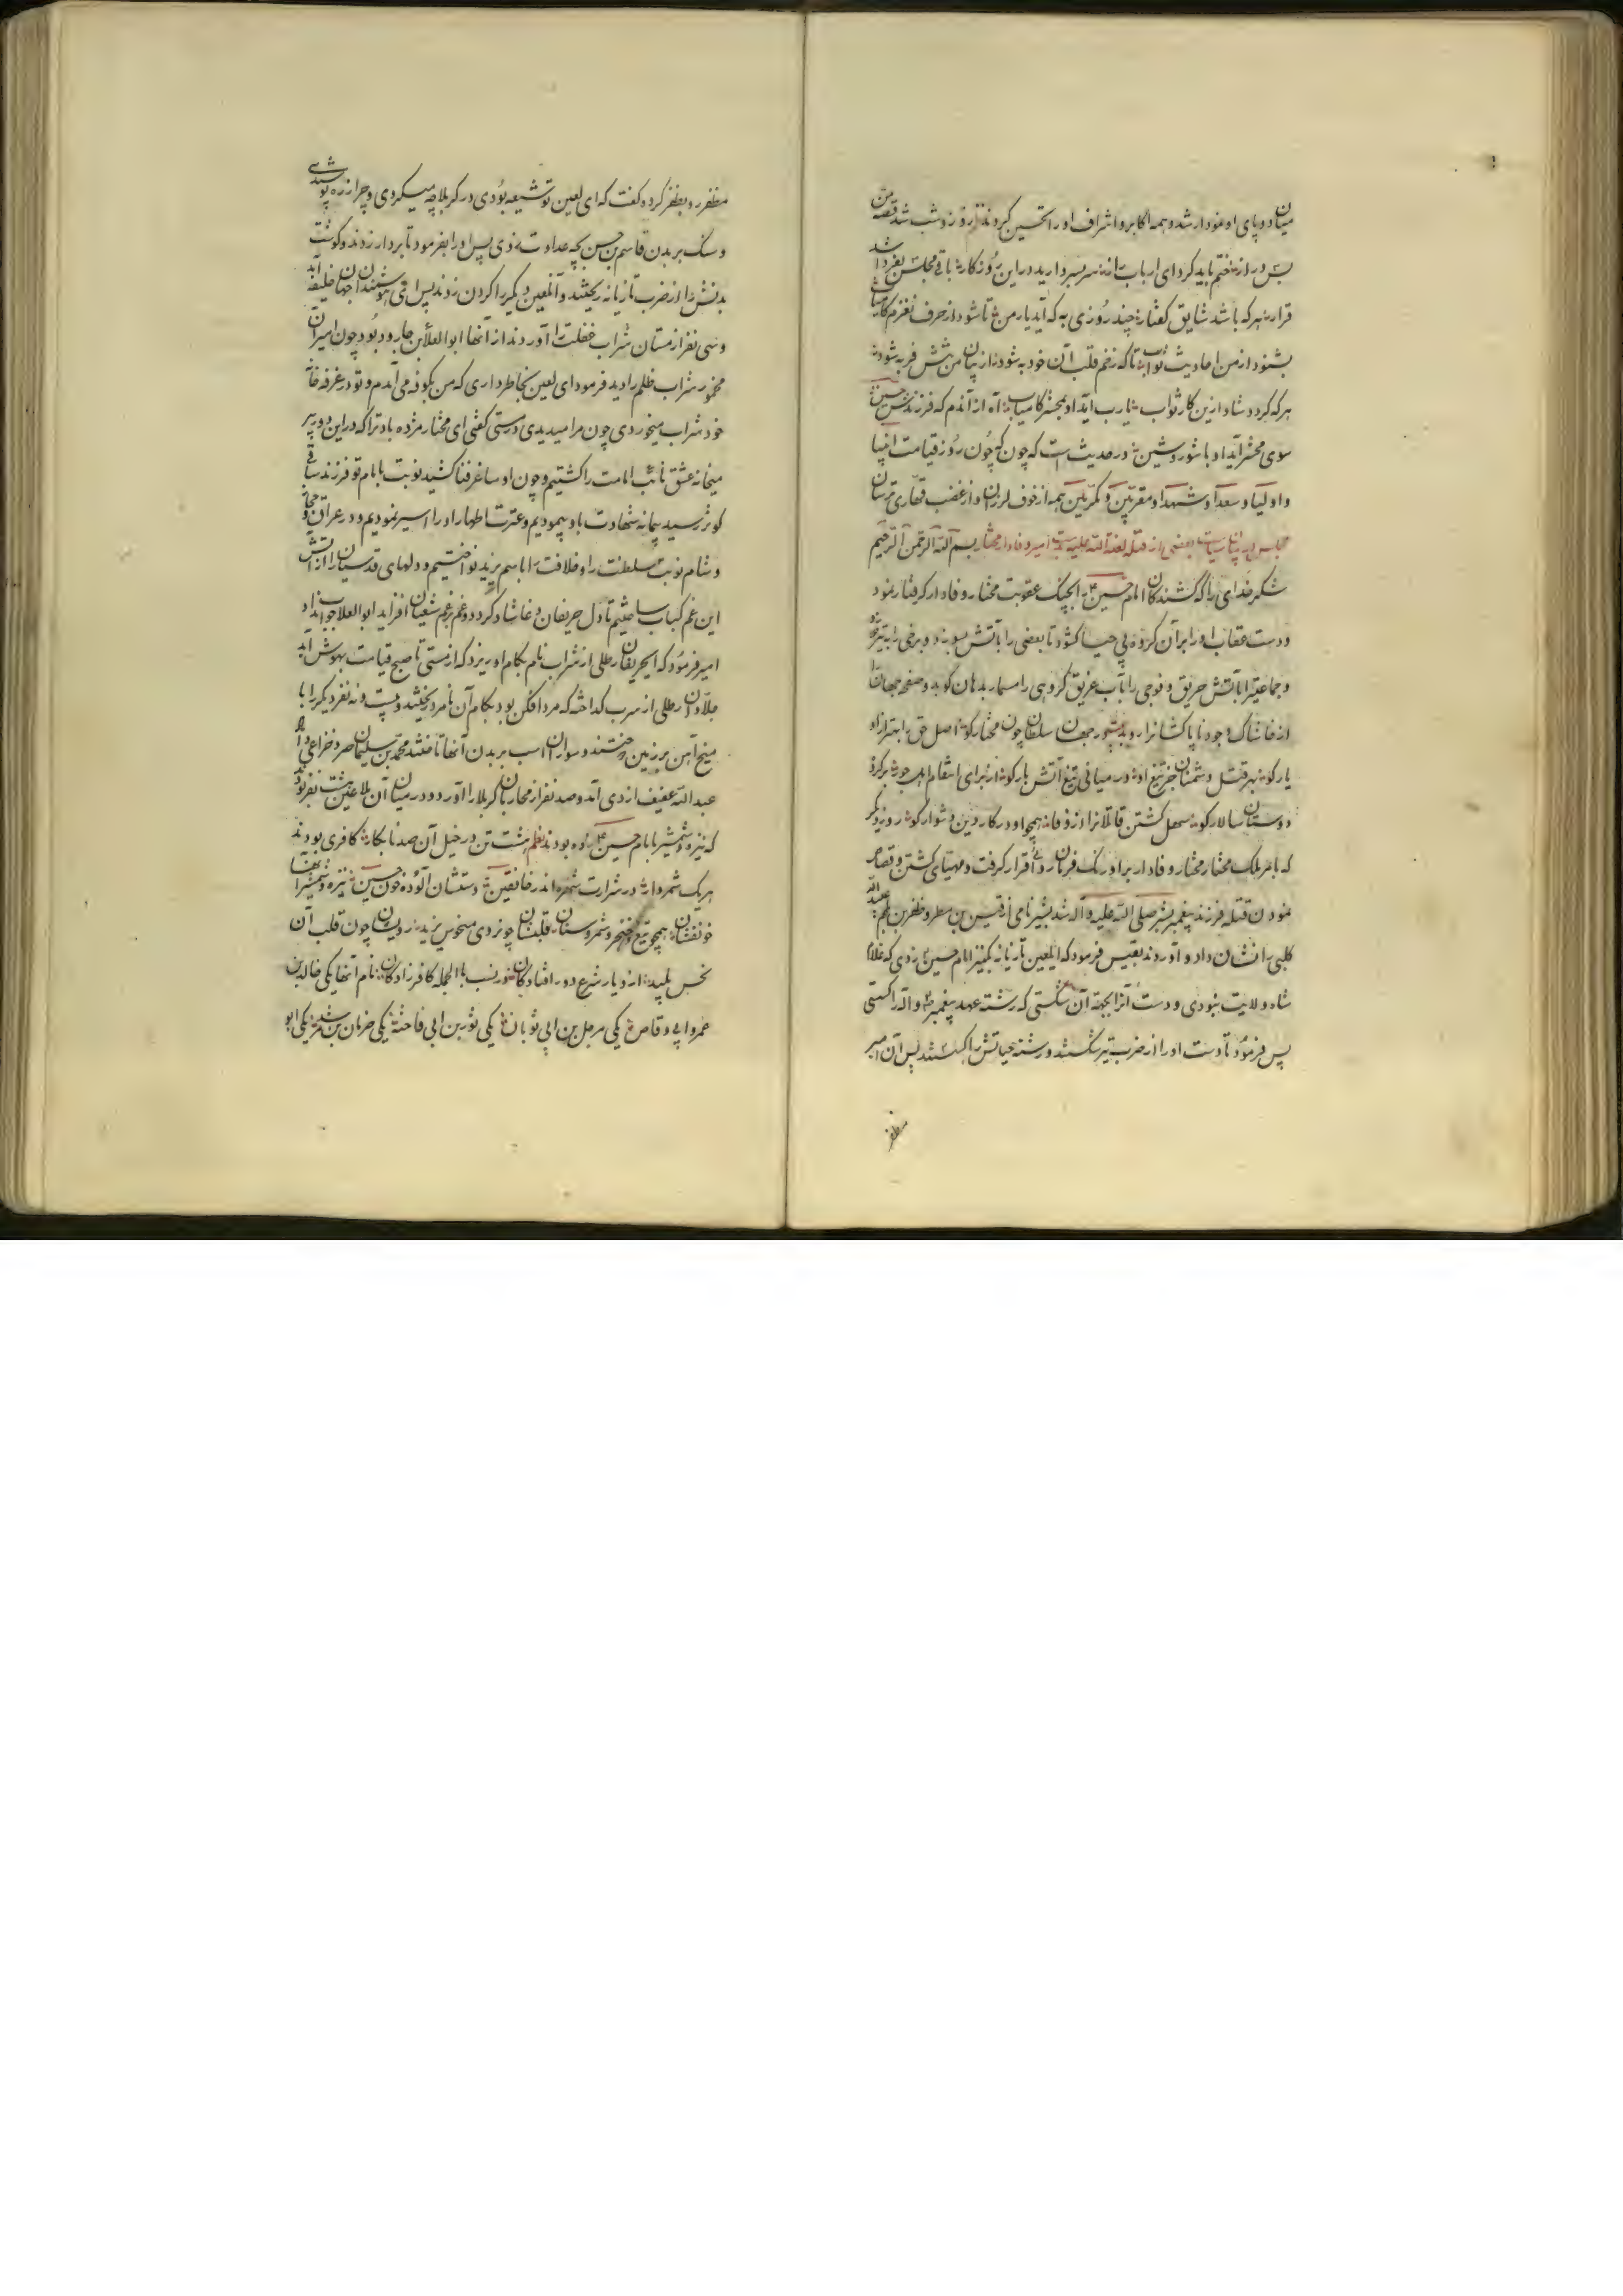 میان دو پای او نمودار شد و همه اکابر و اشراف او را تحسین کردند روز و شب شد قصه من
بس دراز ختم باید کرد ای ارباب راز سر بسر دارید در این روزگار باقی مجلس بفردا شد
قرار هر که باشد شایق گفتار چند روزی به که آید یار من تا شود از حرف نغزم کامیاب
بشنود از من احادیث ثواب تا که زخم قلب آن خود به شود از بیان من تنش فربه شود
هر که گردد شاد ازین کار ثواب یا رب آید او بمحشر کامیاب آه از آندم که فرزندش حسین
سوی محشر آید او با شور و شین در حدیث است که چون روز قیامت انبیا
و اولیا و سعدا و شهدا و مقربین و مکرمین همه از خوف لرزان و از غضب قهاری ترسان
مجلس در بیان سیاست بعضی از قتله لعنة الله علیه بدست امیر وفادار مختار بسم الله الرحمن الرحیم
شکر خدای را که کشندگان امام حسین را بچنگ عقوبت مختار وفادار گرفتار نمود
و دست عقاب او را بر آن گروه بی حیا گشود تا بعضی را بآتش سوزد و برخی را به تیر
و جماعتی را بآتش حریق و فوجی را بآب غریق گروهی را مسمار بدهان کوبد و صفحه جهان را
از خاشاک وجود ناپاکشان روبد در جهان سلطان چون مختار کو اصل حق را بهتر از او
یار کو بهر قتل دشمنان جز تیغ او در میانی تیغ آتش بار کو از برای انتقام
دوستان سالار کو سهل کشتن قاتلان را از وفا همچو او در کار دین دشوار کو روز دیگر
که با مر ملک مختار مختار وفادار بر اورنگ فرمان روائی قرار گرفت و مهیای کشتن و قصاص
نمودن قتله فرزند پیغمبر صلی الله علیه و آله شد بشیر نامی از قیس بن مطر و مظفر بن عبدالله
کلبی نشان داد و آوردند بقیس فرمود که ای لعین تازیانه بکنیز امام حسین زدی که غلام
شاه ولایت نبودی و دست آنرا بجهة آن شکستی که رشته عهد پیغمبر و آله را گسستی
پس فرمود تا دست او را از ضرب تیر شکستند و رشته حیاتش را گسستند پس آن امیر
مظفر
مظفر رو بظفر کرده گفت که ای لعین تو شیعه بودی در کربلا چه میکردی و چرا زره پوشیدی
و سنگ بر بدن قاسم بن حسن بچه عداوت زدی پس او را بفرمود تا بردار زدند و گوشت
بدنش را از ضرب تازیانه ریختند و آن لعین دیگر را گردن زدند پس
و سی نفر از مستان شراب غفلت را آوردند از آنها ابوالعلا بن جارود بود چون امیر آن
مخمور شراب ظلم را دید فرمود ای لعین بخاطر داری که من بکوفه می آمدم و تو در غرفه خانه
خود شراب میخوردی چون مرا میدیدی درستی گفتی ای مختار مژده باد ترا که در این دو پیر
میخانه عشق نائب امامت را کشتیم و چون او ساغر فنا کشید نوبت بامام تو فرزند ساقی
کوثر رسید پیمانه شهادت باو پیمودیم و عترت اطهار او را اسیر نمودیم و در عراق و حجاز
و شام نوبت سلطنت را و خلافت را باسم یزید نواختیم و دلهای قدسیان را از آتش
این غم کباب ساختیم تا دل حریفان دغا شاد گردد و غم بر غم شیعیان افزاید ابوالعلا جواب نداد
امیر فرمود که ای حریفان رطلی از شراب نام بکام او ریزد که از مستی تا صبح قیامت بهوش آید
جلادان رطلی از سرب گداخته که مرد افکن بود بکام آن نامرد ریختند و بیست و نه نفر دیگر را با
میخ آهن بر زمین دوختند و سواران اسب بر بدن آنها تاختند محمد بن سلیمان صرد خزاعی و
عبدالله عفیف ازدی آمد و صد نفر از محاربان کربلا را آورد و در میان آن ملاعین هشت نفر بودند
که نیزه و شمشیر بامام حسین زده بودند نظم هشت تن در خیل آن صد نابکار کافری بودند
هر یک شمر وار در شرارت شهره اندر خافقین دستشان آلوده خون حسین نیزه و شمشیر آنها
خونفشان همچو تیغ و خنجر و شمر و سنان قلبشان چون روی منحوس یزید رویشان چون قلب آن
نحس پلید از دیار شرع دور افتادگان در نسب بالجمله کافر زادگان نام آنها یکی خالد بن
عمر و ابی وقاص یکی مرجل بن ابی ثوبان یکی ثور بن ابی فاحشه یکی ضربان بن یکی ابو